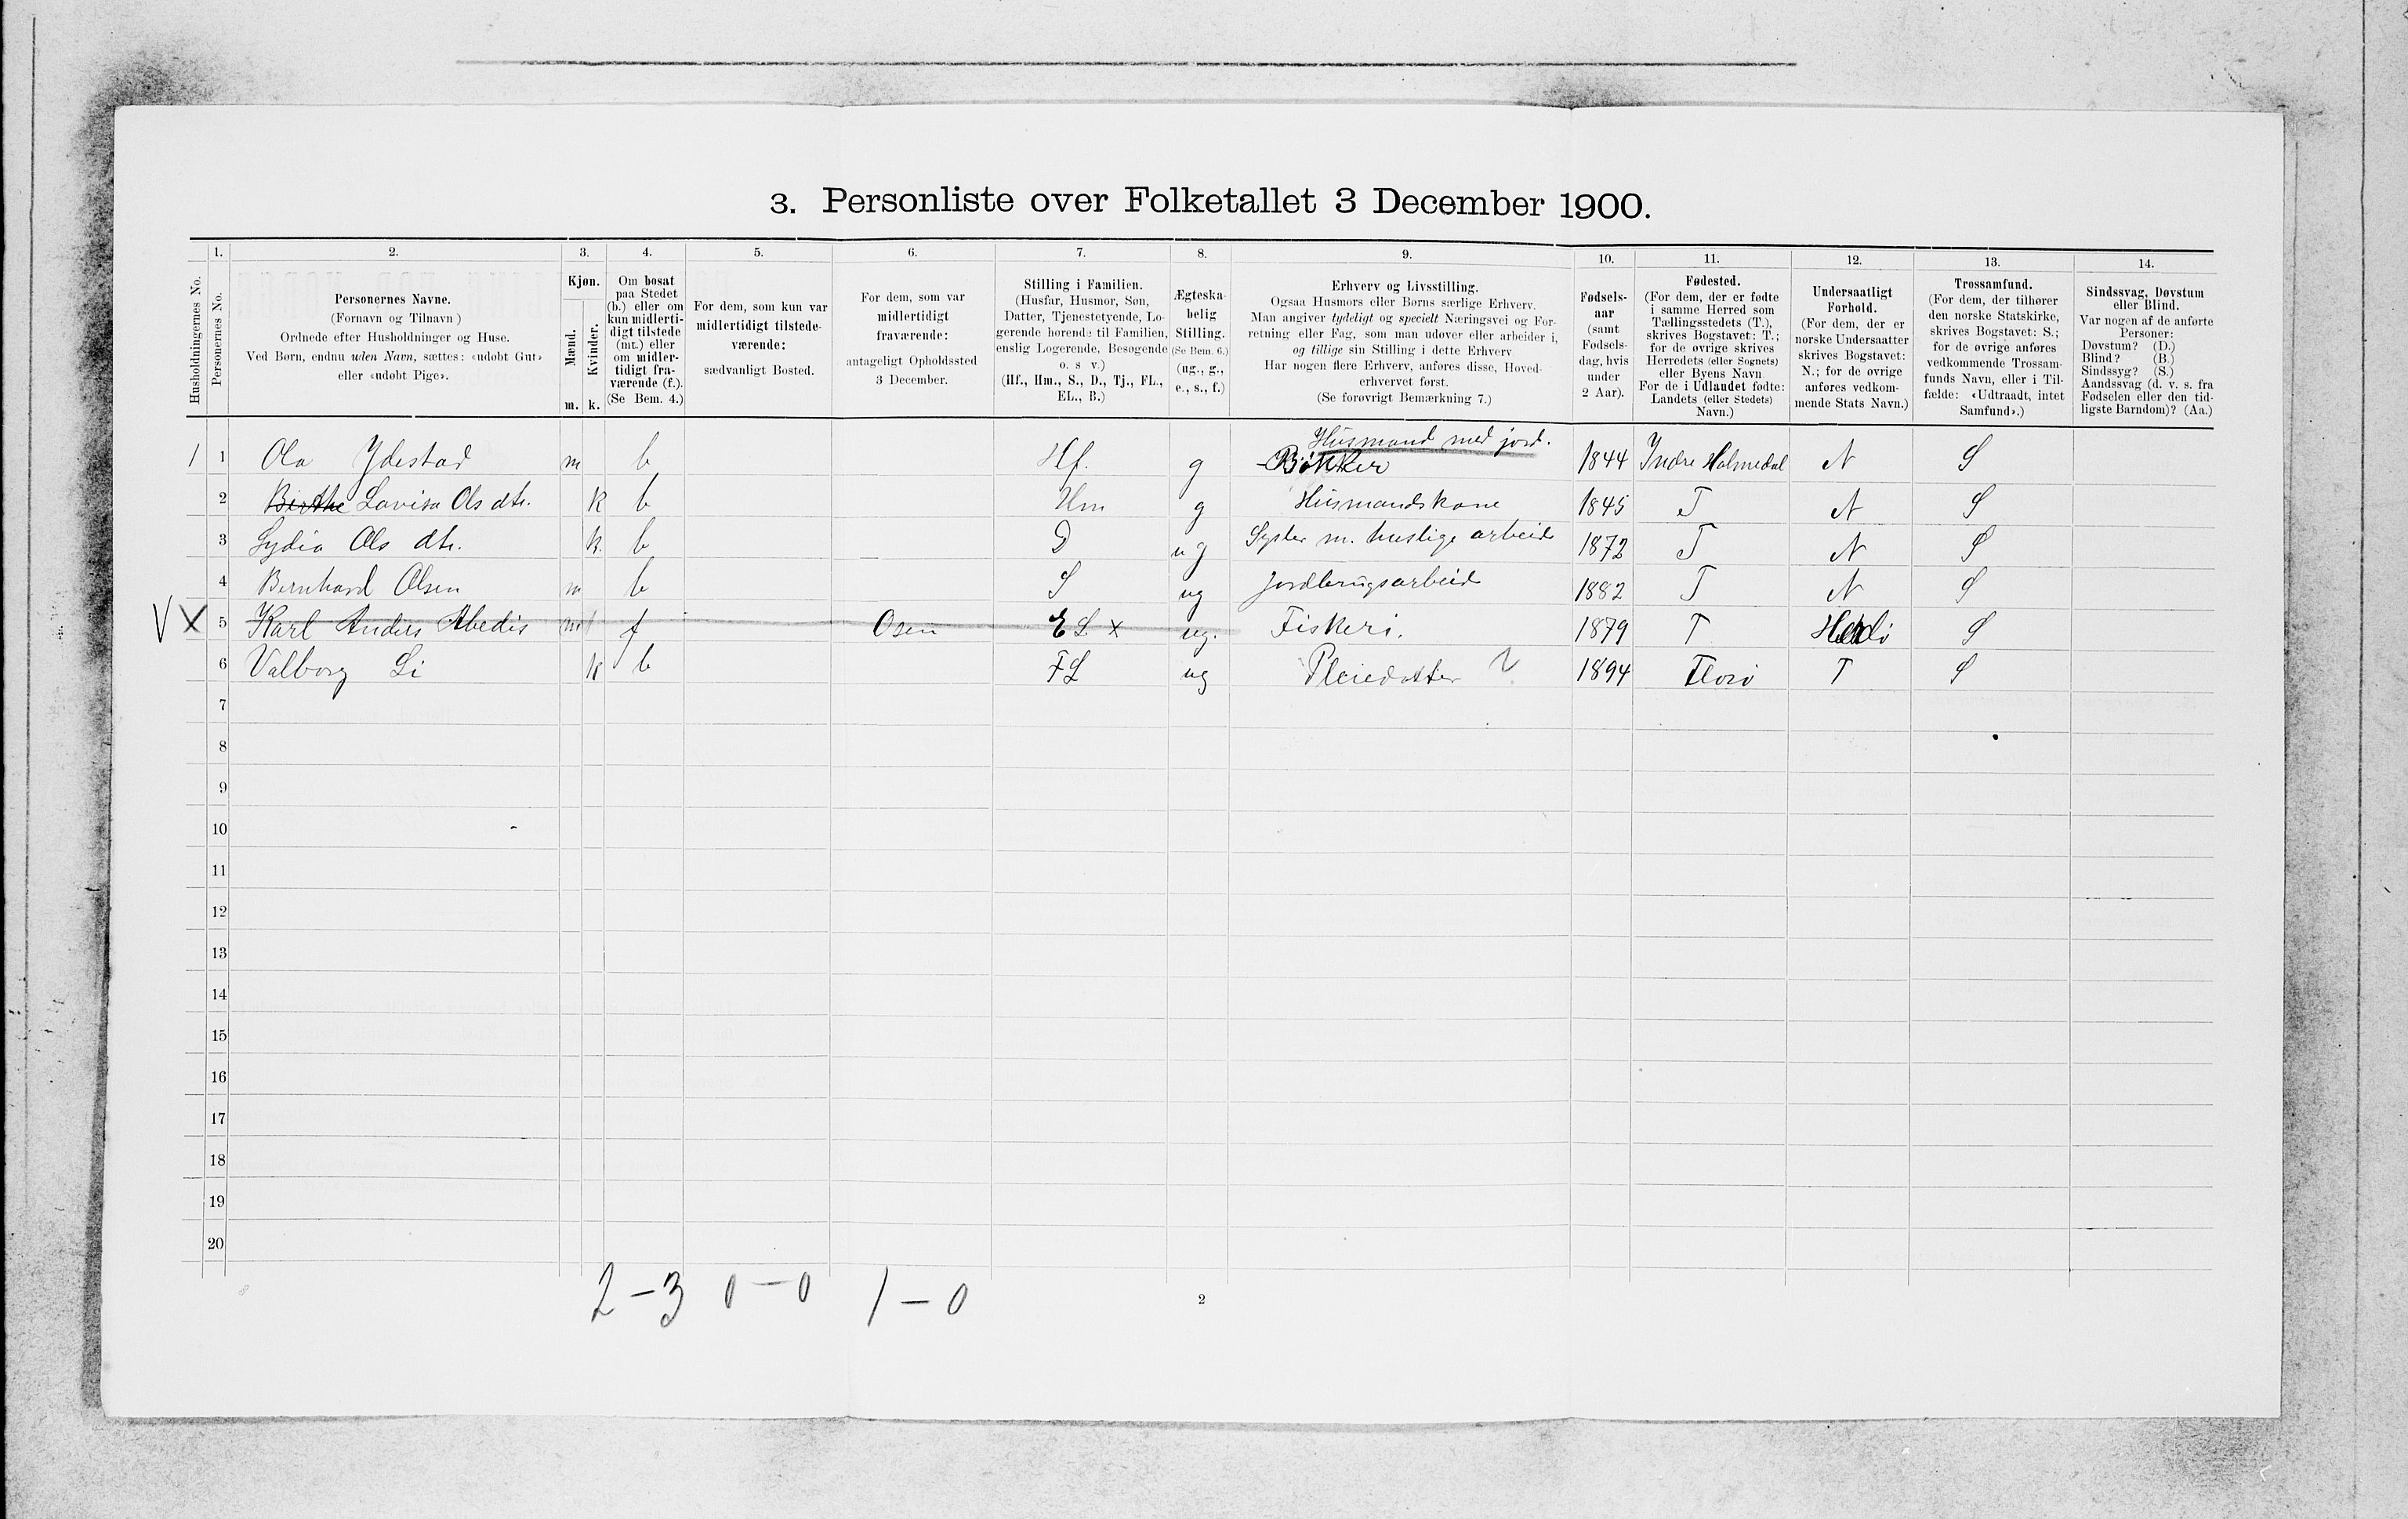 3. Personliste over Folketallet 3 December 1900.
1. 2. 3. 4. 5. 6. 7. 8. 9. 10. 11. 12. 13. 14.
Husholdningernes No.
Personernes No.
Personernes Navne.
(Fornavn og Tilnavn )
Ordnede efter Husholdninger og Huse.
Ved Børn, endnu uden Navn, sættes: «udøbt Gut»
eller «udøbt Pige».
Kjøn.
Mænd.
Kvinder.
m. k.
Om bosat
paa Stedet
(b.) eller om
kun midlerti-
digt tilstede
(mt.) eller
om midler-
tidigt fra-
værende (f.).
(Se Bem. 4.)
For dem, som kun var
midlertidigt tilstede-
værende:
sædvanligt Bosted.
For dem, som var
midlertidigt
fraværende:
antageligt Opholdssted
3 December.
Stilling i Familien.
(Husfar, Husmor, Søn,
Datter, Tjenestetyende, Lo-
gerende hørende til Familien,
enslig Logerende, Besøgende
o. s v.)
(Hf., Hm., S., D., Tj., FL.,
EL., B.)
Ægteska-
belig
Stilling.
(Se Bem. 6.)
(ug., g.,
e., s., f.)
Erhverv og Livsstilling.
Ogsaa Husmors eller Børns særlige Erhverv.
Man angiver tydeligt og specielt Næringsvei og For-
retning eller Fag, som man udøver eller arbeider i,
og tillige sin Stilling i dette Erhverv
Har nogen flere Erhverv, anføres disse, Hoved-
erhvervet først.
(Se forøvrigt Bemærkning 7.)
Fødsels-
aar
(samt
Fødsels-
dag, hvis
under
2 Aar).
Fødested.
(For dem, der er fødte
i samme Herred som
Tællingsstedets (T.),
skrives Bogstavet: T.;
for de øvrige skrives
Herredets (eller Sognets)
eller Byens Navn
For de i Udlandet fødte:
Landets (eller Stedets)
Navn.)
Undersaatligt
Forhold.
(For dem, der er
norske Undersaatter
skrives Bogstavet:
N.; for de øvrige
anføres vedkom-
mende Stats Navn.)
Trossamfund.
(For dem, der tilhører
den norske Statskirke,
skrives Bogstavet: S.;
for de øvrige anføres
vedkommende Trossam-
funds Navn, eller i Til-
fælde: «Udtraadt, intet
Samfund».)
Sindssvag, Døvstum
eller Blind.
Var nogen af de anførte
Personer:
Døvstum? (D.)
Blind? (B.)
Sindssyg? (S.)
Aandssvag (d. v. s. fra
Fødselen eller den tid-
ligste Barndom)? (Aa.)
Husmand med jord.
1 1 Ola Ydestad m b Hf. g Bøkker 1844 Indre Holmedal N S
2 Birthe Lovisa Ols dtr. k b Hm g Husmandskone 1845 T N S
3 Lydia Ols dtr. k. b D ug Syster m. huslige arbeide 1872 T N S
4 Bernhard Olsen m b S ug jordbrugsarbeid 1882 T N S
V X 5 Karl Anders m f Osen EL x ug. Fiskeri. 1879 T S
6 Valborg Li k b FL ug Pleiedatter 1894 Florø T S
7
8
9
10
11
12
13
14
15
16
17
18
19
20
2-3 0-0 1-0
2